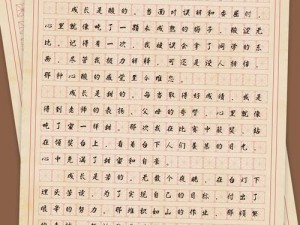 成长是酸的。当面对误解和委屈时，
心里就像吃了一颗未成熟的梅子，酸涩无
比。记得有一次，我被误会拿了同学的东
西，尽管我极力解释，却没人相信，
那种心酸的感觉至今难忘。
成长是甜的。每当取得好成绩，或是
得到老师的表扬、父母的夸赞，心里就像
吃了蜜一样甜。那次我在比赛中获奖，站
在领奖台上，看着台下人们羡慕的目光，
心中充满了甜蜜和自豪。
成长是苦的。无数个夜晚，在台灯下
埋头苦读，为了实现自己的目标，付出了
艰辛的努力。那难题如山的作业，